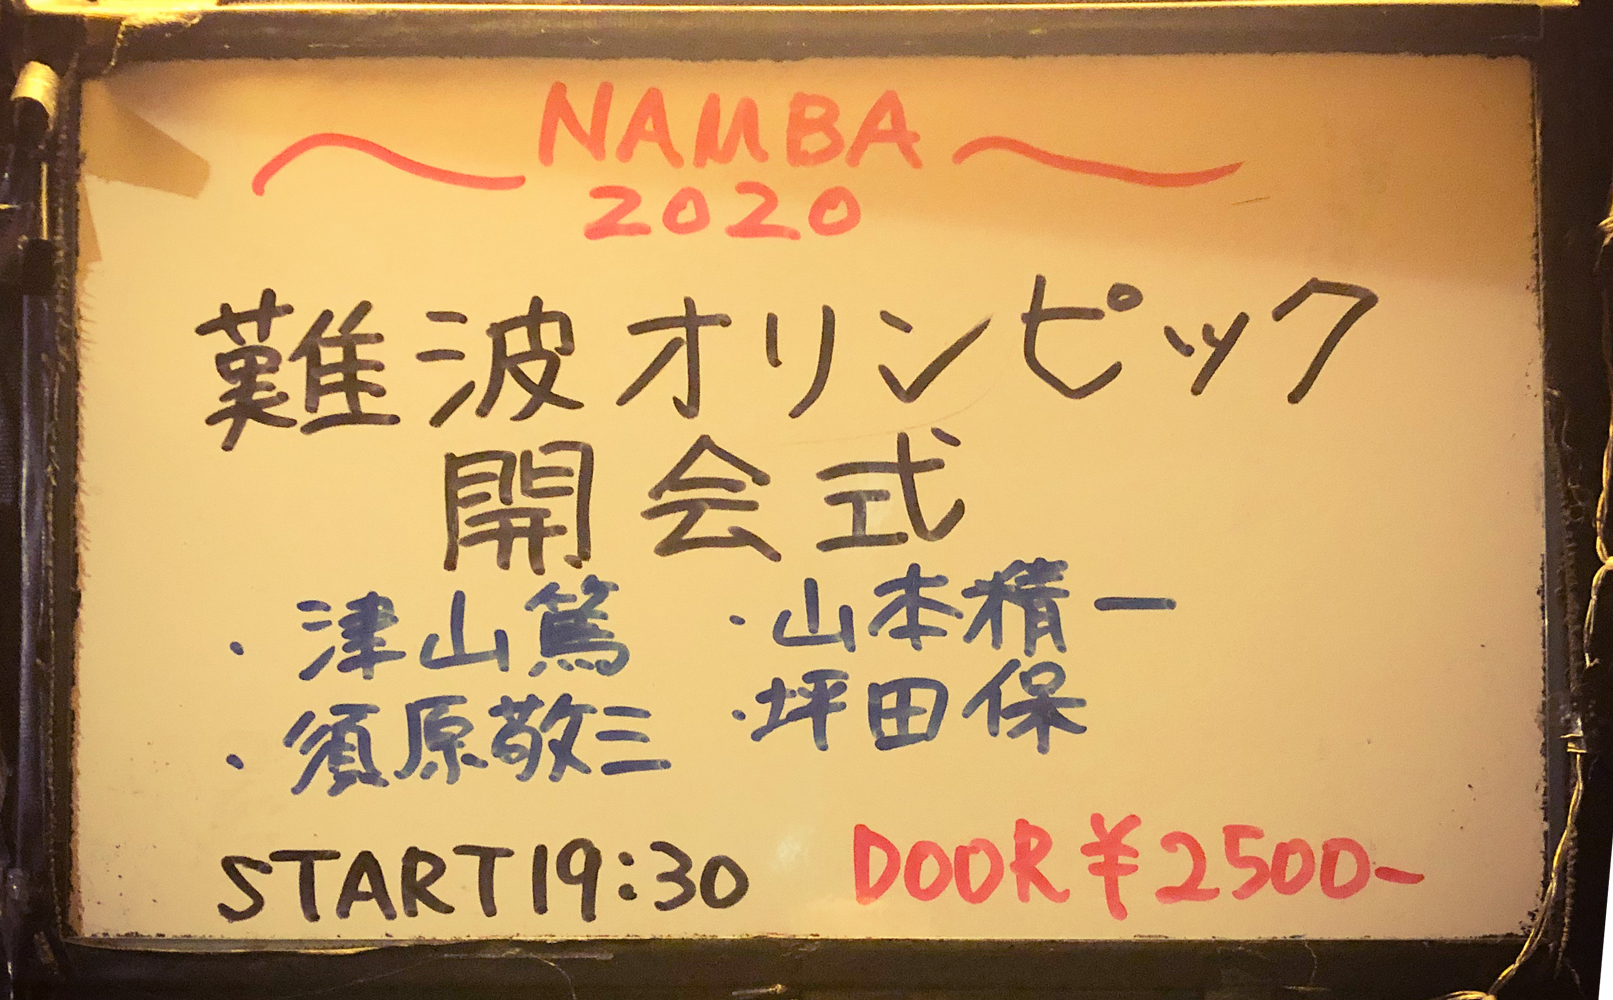 NAMBA
2020
難波オリンピック
開会式
・津山篤 ・山本精一
・須原敬三 ・坪田保
START19:30 DOOR¥2500-